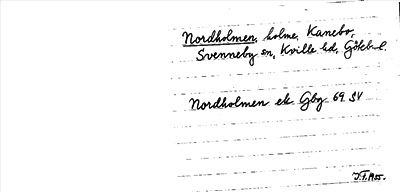 Nordholmen, holme, Kanebo,
Svenneby sn, Kville hd, Göteb.l.
Nordholmen ek Gbg 69 SV